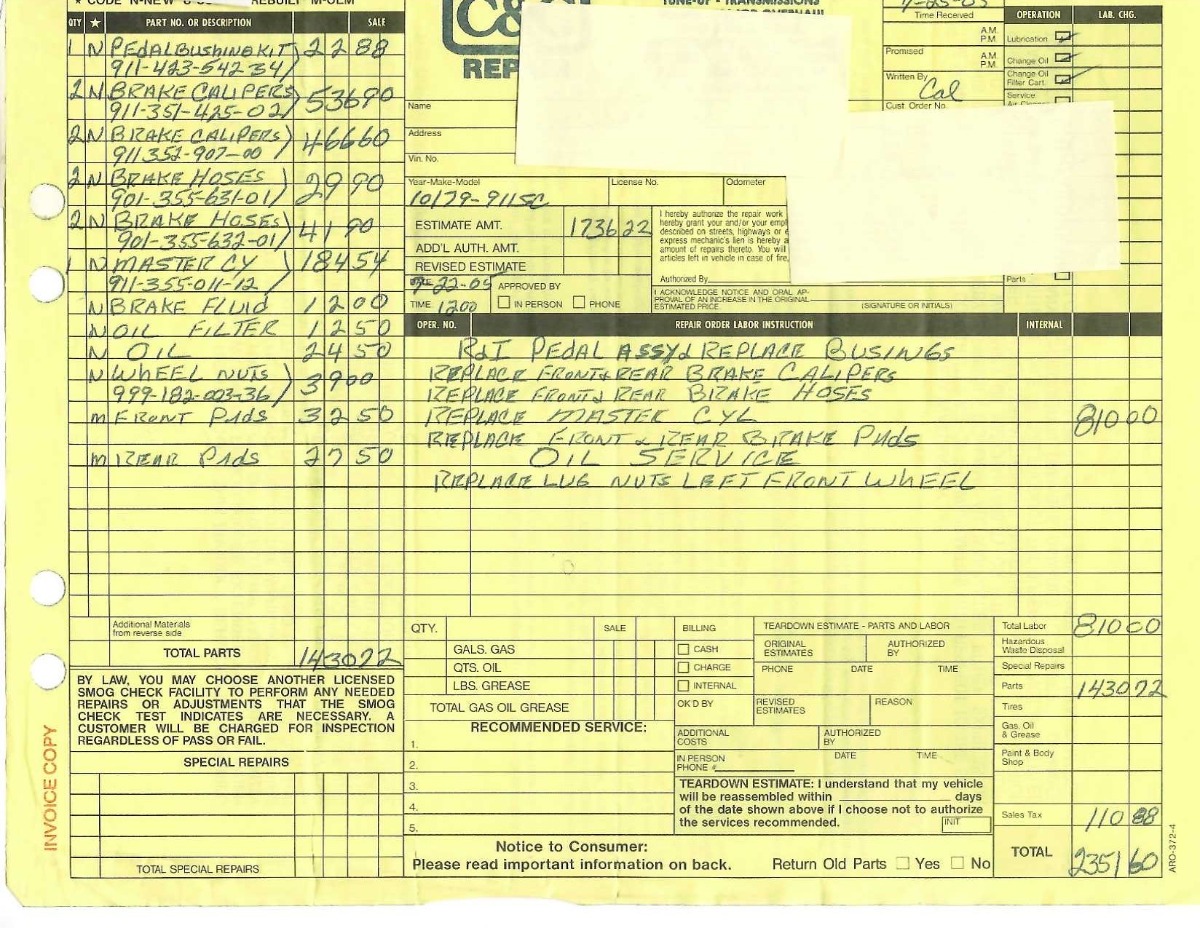 ★ CODE N-NEW REBUILT M-OEM
QTY ★ PART NO. OR DESCRIPTION SALE
1 N PEDAL BUSHING KIT 22 88
911-423-542-34
2 N BRAKE CALIPERS 536 90
911-351-425-02
2 N BRAKE CALIPERS 466 60
911 352-907-00
2 N BRAKE HOSES 29 90
901-355-631-01
2 N BRAKE HOSES 41 90
901-355-632-01
1 N MASTER CY 184 54
911-355-011-12
N BRAKE FLUID 12 00
N OIL FILTER 12 50
N OIL 24 50
N WHEEL NUTS 39 00
999-182-003-36
M FRONT PADS 32 50
M REAR PADS 27 50
Additional Materials
from reverse side
TOTAL PARTS 1430 72
BY LAW, YOU MAY CHOOSE ANOTHER LICENSED
SMOG CHECK FACILITY TO PERFORM ANY NEEDED
REPAIRS OR ADJUSTMENTS THAT THE SMOG
CHECK TEST INDICATES ARE NECESSARY. A
CUSTOMER WILL BE CHARGED FOR INSPECTION
REGARDLESS OF PASS OR FAIL.
SPECIAL REPAIRS
TOTAL SPECIAL REPAIRS
INVOICE COPY
TUNE-UP - TRANSMISSIONS
REP
Name
Address
Vin. No.
Year-Make-Model License No. Odometer
10/79-911SC
ESTIMATE AMT. 1736 22
ADD'L AUTH. AMT.
REVISED ESTIMATE
DATE 7-22-05 APPROVED BY
TIME 1200 IN PERSON PHONE
I hereby authorize the repair work
hereby grant you and/or your empl
described on streets, highways or e
express mechanic's lien is hereby a
amount of repairs thereto. You will
articles left in vehicle in case of fire,
Authorized By
I ACKNOWLEDGE NOTICE AND ORAL AP-
PROVAL OF AN INCREASE IN THE ORIGINAL
ESTIMATED PRICE. (SIGNATURE OR INITIALS)
7-25-05
Time Received
A.M.
P.M.
Promised
A.M.
P.M.
Written By
Cal
Cust. Order No.
OPERATION LAB. CHG.
Lubrication
Change Oil
Change Oil
Filter Cart.
Service
Parts
OPER. NO. REPAIR ORDER LABOR INSTRUCTION INTERNAL
R&I PEDAL ASSY & REPLACE BUSINGS
REPLACE FRONT & REAR BRAKE CALIPERS
REPLACE FRONT & REAR BRAKE HOSES
REPLACE MASTER CYL 810 00
REPLACE FRONT & REAR BRAKE PADS
OIL SERVICE
REPLACE LUG NUTS LEFT FRONT WHEEL
QTY. SALE
GALS. GAS
QTS. OIL
LBS. GREASE
TOTAL GAS OIL GREASE
RECOMMENDED SERVICE:
1.
2.
3.
4.
5.
BILLING
CASH
CHARGE
INTERNAL
OK'D BY
TEARDOWN ESTIMATE - PARTS AND LABOR
ORIGINAL
ESTIMATES
AUTHORIZED
BY
PHONE DATE TIME
REVISED
ESTIMATES
REASON
ADDITIONAL
COSTS
AUTHORIZED
BY
IN PERSON
PHONE #
DATE TIME
TEARDOWN ESTIMATE: I understand that my vehicle
will be reassembled within days
of the date shown above if I choose not to authorize
the services recommended.
INIT
Notice to Consumer:
Please read important information on back.
Return Old Parts Yes No
Total Labor 810 00
Hazardous
Waste Disposal
Special Repairs
Parts 1430 72
Tires
Gas, Oil
& Grease
Paint & Body
Shop
Sales Tax 110 88
TOTAL 2351 60
ARO-372-4